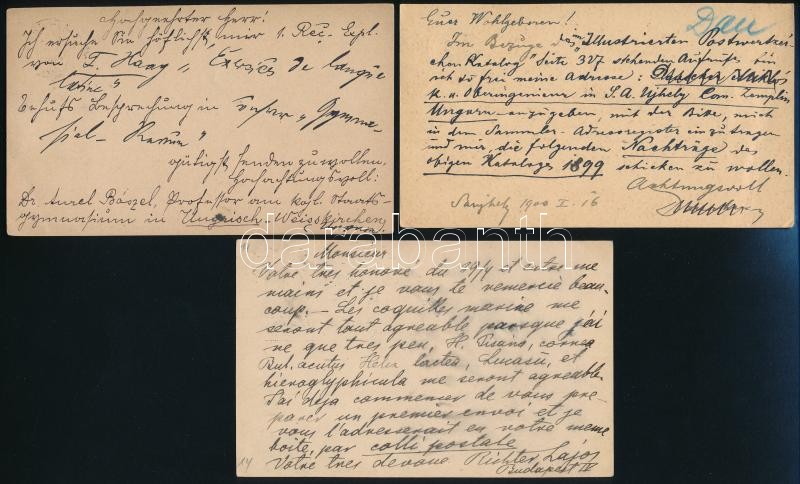 Hochgeehrter Herr!
Ich ersuche Sie höflichst, mir 1 Rec. Expl.
von F. Haag „Exercices de langue
latine"
Behufs Besprechung in
siel-Revue"
gütigst senden zu wollen.
Hochachtungsvoll:
Dr. Aurel Professor am kgl. Staats-
gymnasium in Ungrisch-Weisskirchen
Euer Wohlgeboren!
Im Bezuge des im „Illustrierten Postwertzei-
chen Katalog" Seite 327 stehenden Aufrufs, bin
ich so frei meine Adresse:
k. u. Oberingenieur in S. A. Ujhely Com. Zemplin
Ungarn anzugeben, mit der Bitte, mich
in dem Sammler-Adressregister einzutragen
und mir, die folgenden Nachträge des
obigen Kataloges 1899 schicken zu wollen.
Achtungsvoll
1900 X. 16
Monsieur
Votre tres honoré du 29/4 et entre me
mains et je vous te remercie beau-
coup. – Les coquilles marine me
seront tout agreable parsque j'ai
ne que tres peu, H. Pisana,
But. acutus Helix lactea, et
hieroglyphicula me seront agreable.
J'ai deja commencer de vous pre-
parer un premier envoi et je
vous l'adresserait en votre meme
boite, par colli postale
Votre tres devoué Richter Lajos
Budapest IV
darabanth.com